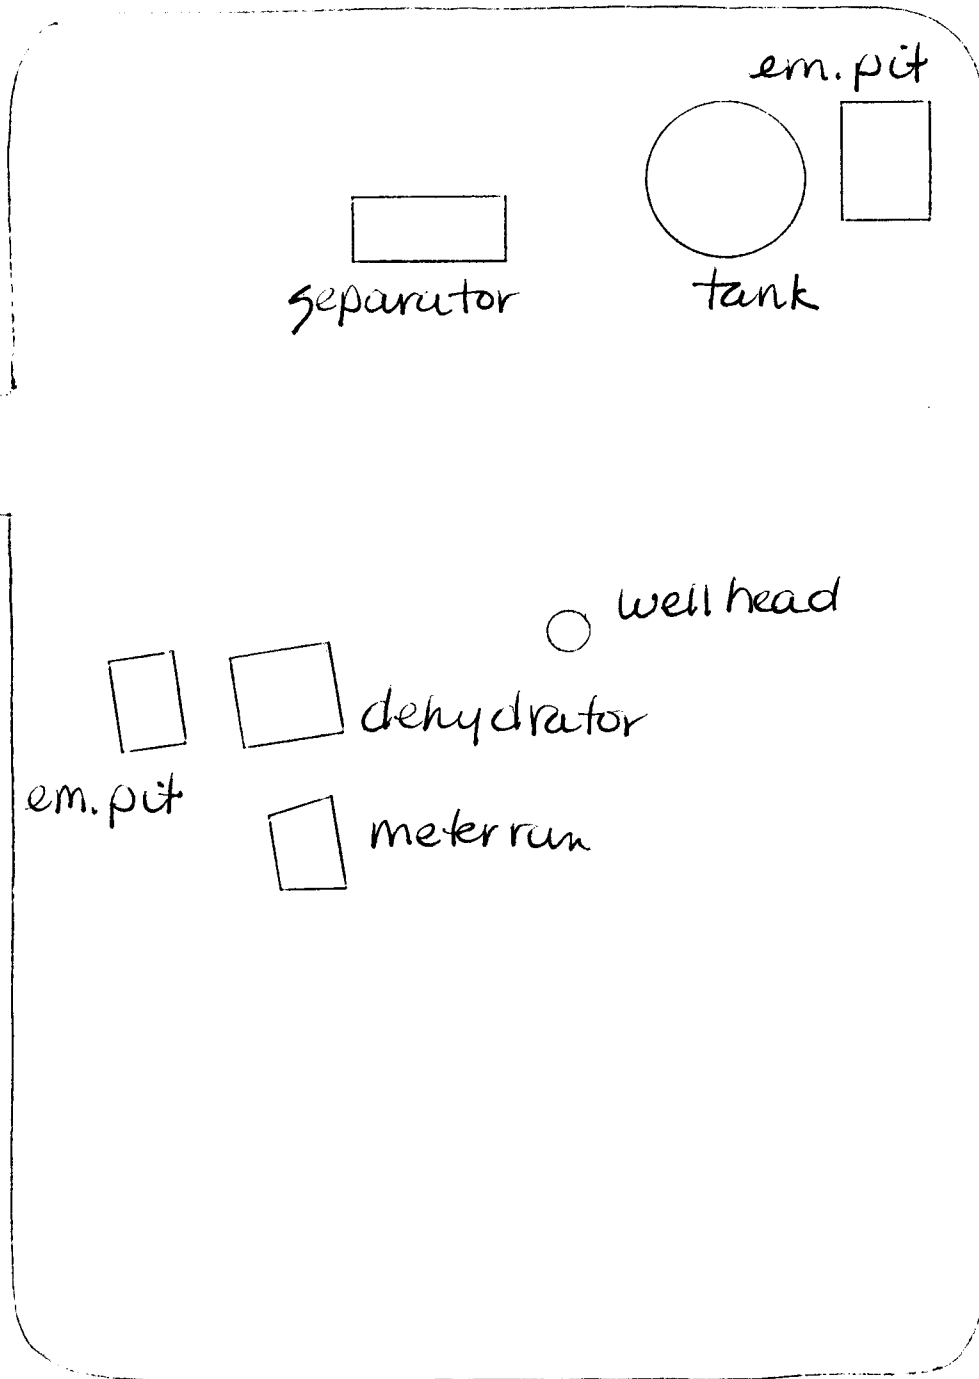 em. pit
separator
tank
well head
dehydrator
em. pit
meter run